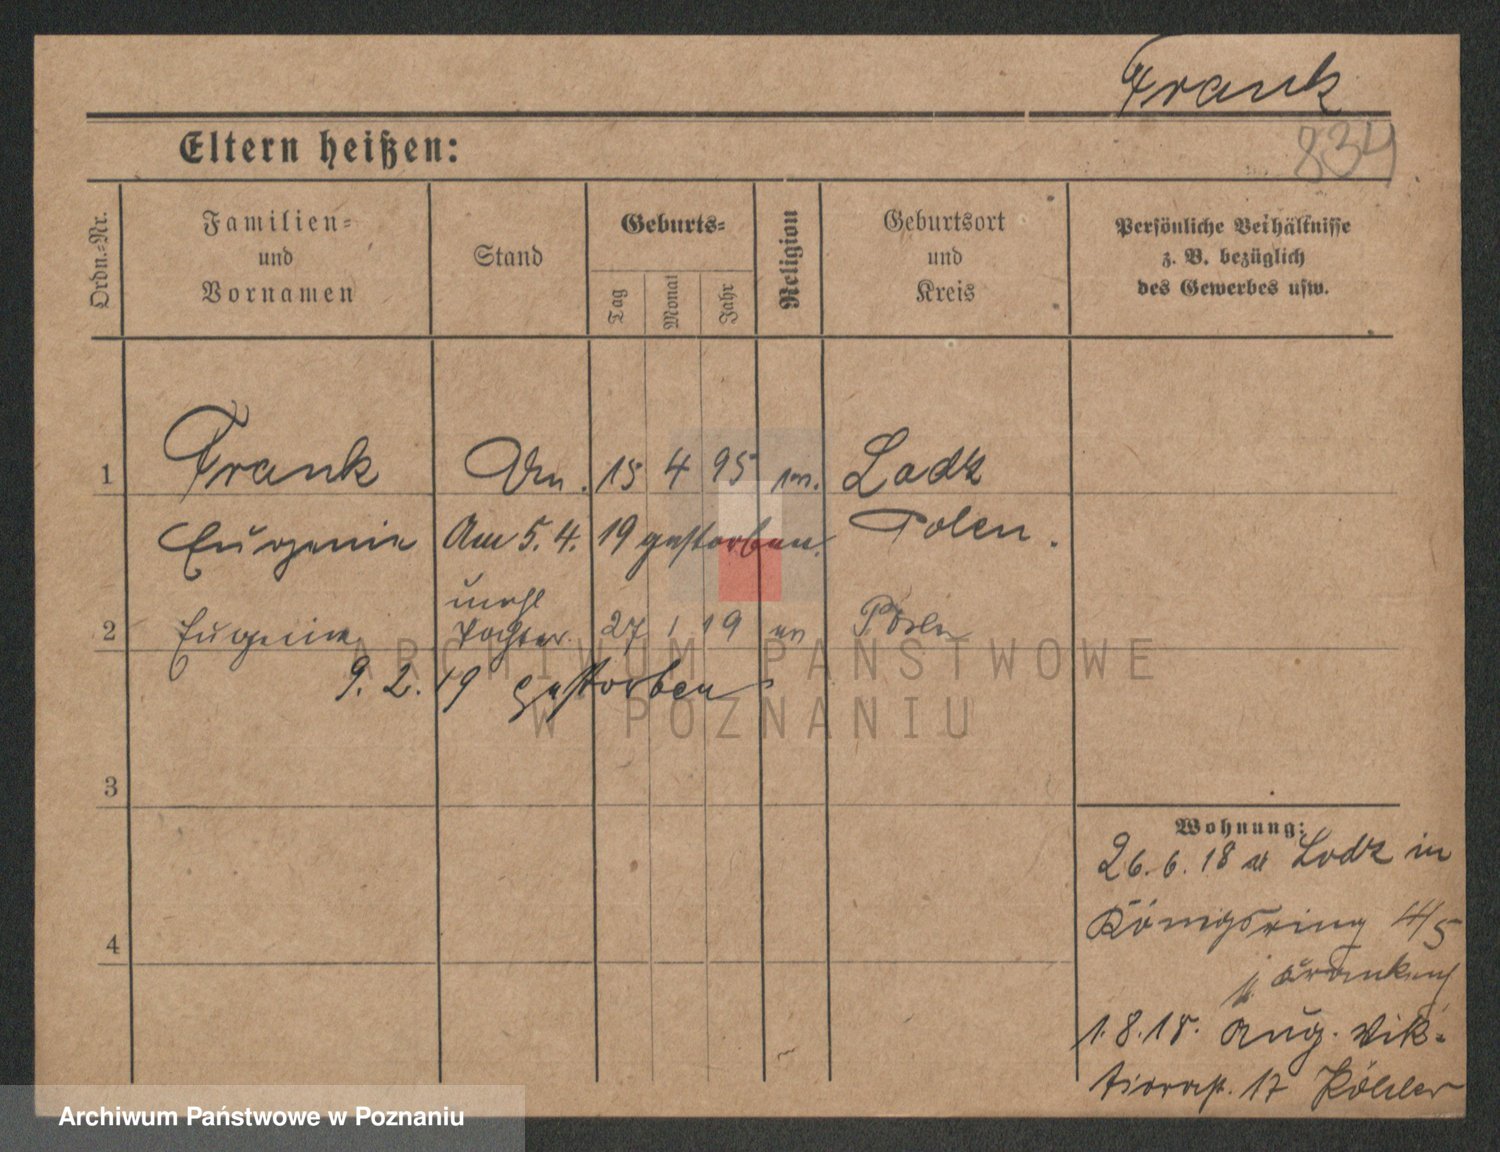 Frank
834
Eltern heißen:
Ordn.-Nr.
Familien-
und
Vornamen
Stand
Geburts-
Tag
Monat
Jahr
Religion
Geburtsort
und
Kreis
Persönliche Verhältnisse
z. B. bezüglich
des Gewerbes usw.
1 Frank 15 4 95 Lodz
Eugenie Am 5. 4. 19 gestorben. Polen.
unehl
2 Eugenie Tochter 27 1 19 Posen
9. 2. 19 gestorben
3
4
Wohnung:
26. 6. 18 Lodz in
Königsring 4/5
1. 8. 18. Aug. Vik-
toriast. 17 Köhler
ARCHIWUM PAŃSTWOWE
W POZNANIU
Archiwum Państwowe w Poznaniu